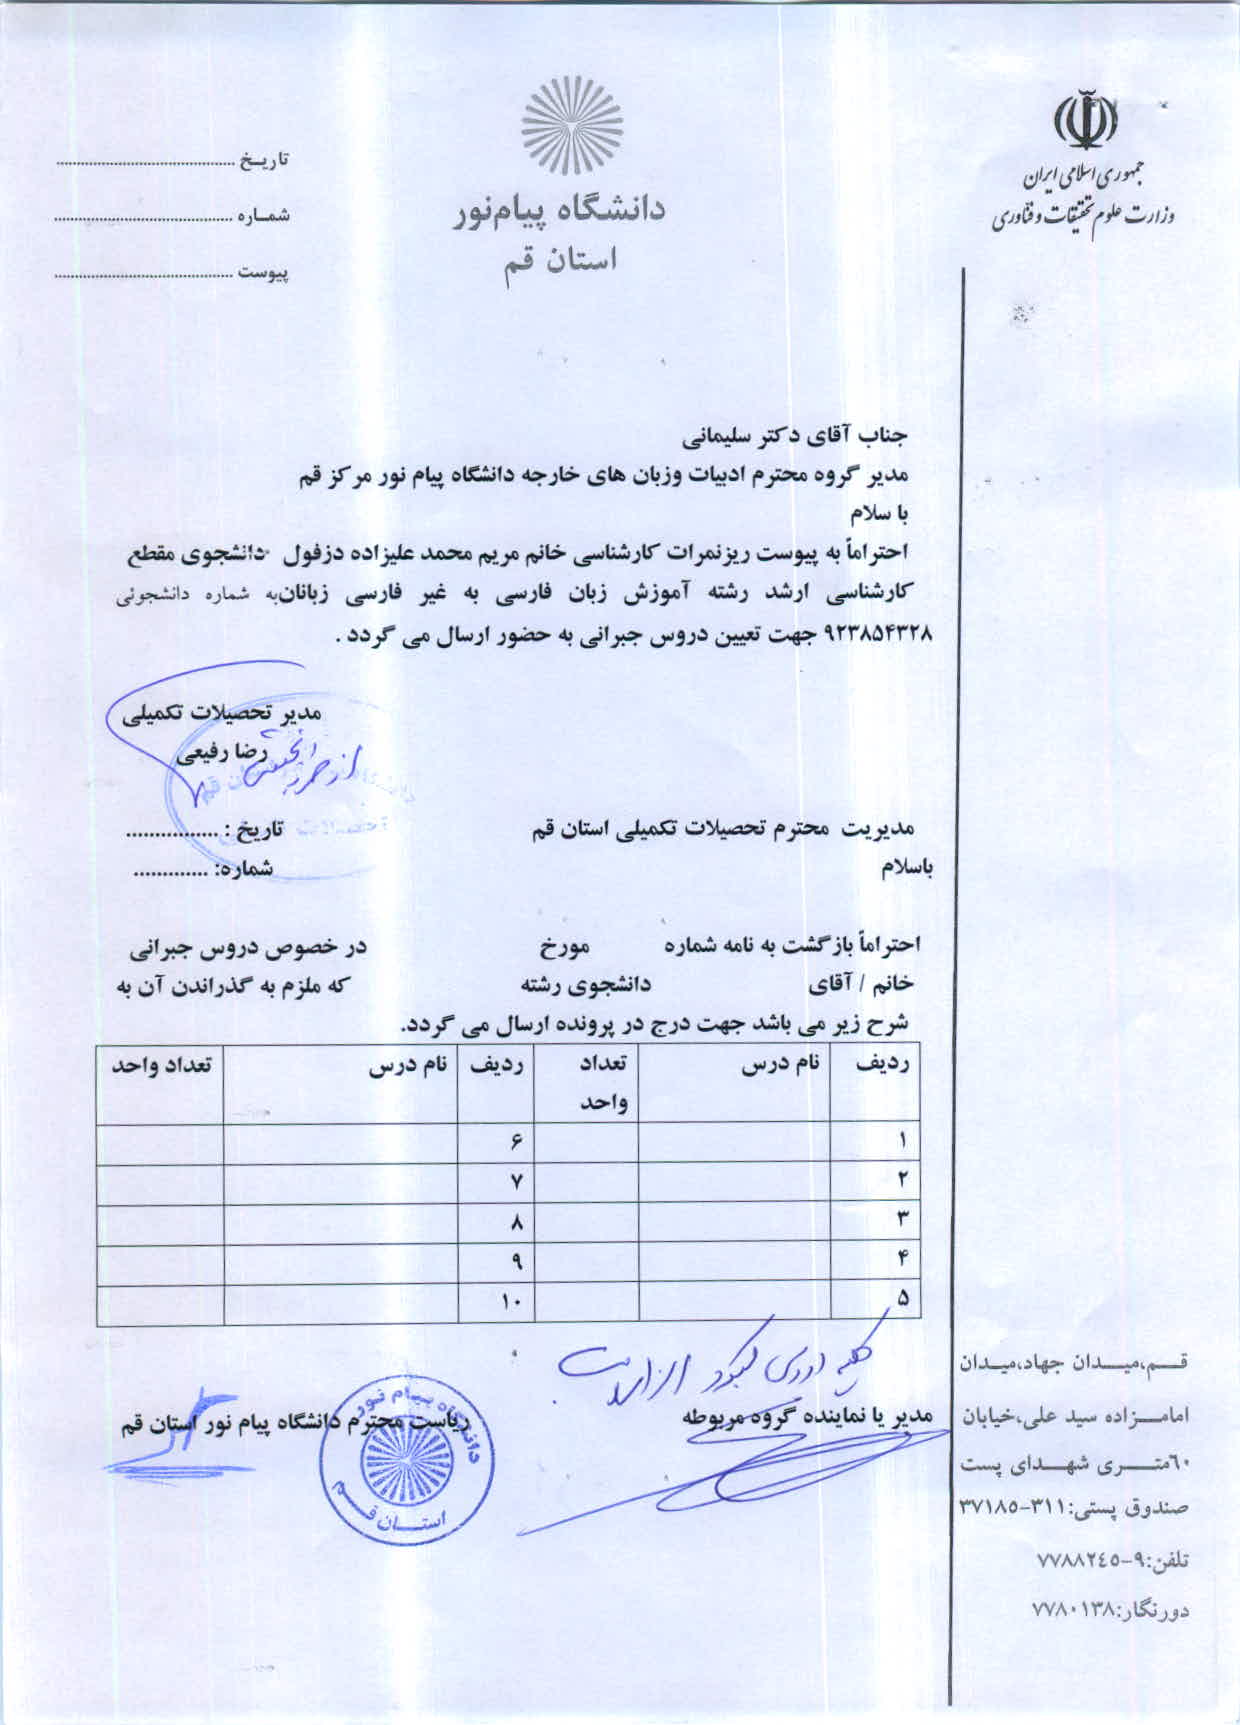 جمهوری اسلامی ایران
وزارت علوم تحقیقات و فناوری
دانشگاه پیام‌نور
استان قم
تاریـخ ........................................
شمـاره ........................................
پیوست ........................................
جناب آقای دکتر سلیمانی
مدیر گروه محترم ادبیات وزبان های خارجه دانشگاه پیام نور مرکز قم
با سلام
احتراماً به پیوست ریزنمرات کارشناسی خانم مریم محمد علیزاده دزفول دانشجوی مقطع
کارشناسی ارشد رشته آموزش زبان فارسی به غیر فارسی زبانان‌به شماره دانشجوئی
۹۲۳۸۵۴۳۲۸ جهت تعیین دروس جبرانی به حضور ارسال می گردد .
مدیر تحصیلات تکمیلی
رضا رفیعی
مدیریت محترم تحصیلات تکمیلی استان قم
تاریخ : ................
باسلام
شماره: .............
احتراماً بازگشت به نامه شماره مورخ در خصوص دروس جبرانی
خانم / آقای دانشجوی رشته که ملزم به گذراندن آن به
شرح زیر می باشد جهت درج در پرونده ارسال می گردد.
ردیف نام درس تعداد واحد ردیف نام درس تعداد واحد
۱ ۶
۲ ۷
۳ ۸
۴ ۹
۵ ۱۰
مدیر یا نماینده گروه مربوطه
ریاست محترم دانشگاه پیام نور استان قم
دانشگاه پیام نور
استـــان قـــم
قـــم،میـــدان جهاد،میـدان
امامـــزاده سید علی،خیابان
٦٠متـــری شهـــدای پست
صندوق پستی:۳۱۱-۳۷۱۸۵
تلفن:۹-۷۷۸۸۲٤٥
دورنگار:۷۷۸۰۱۳۸